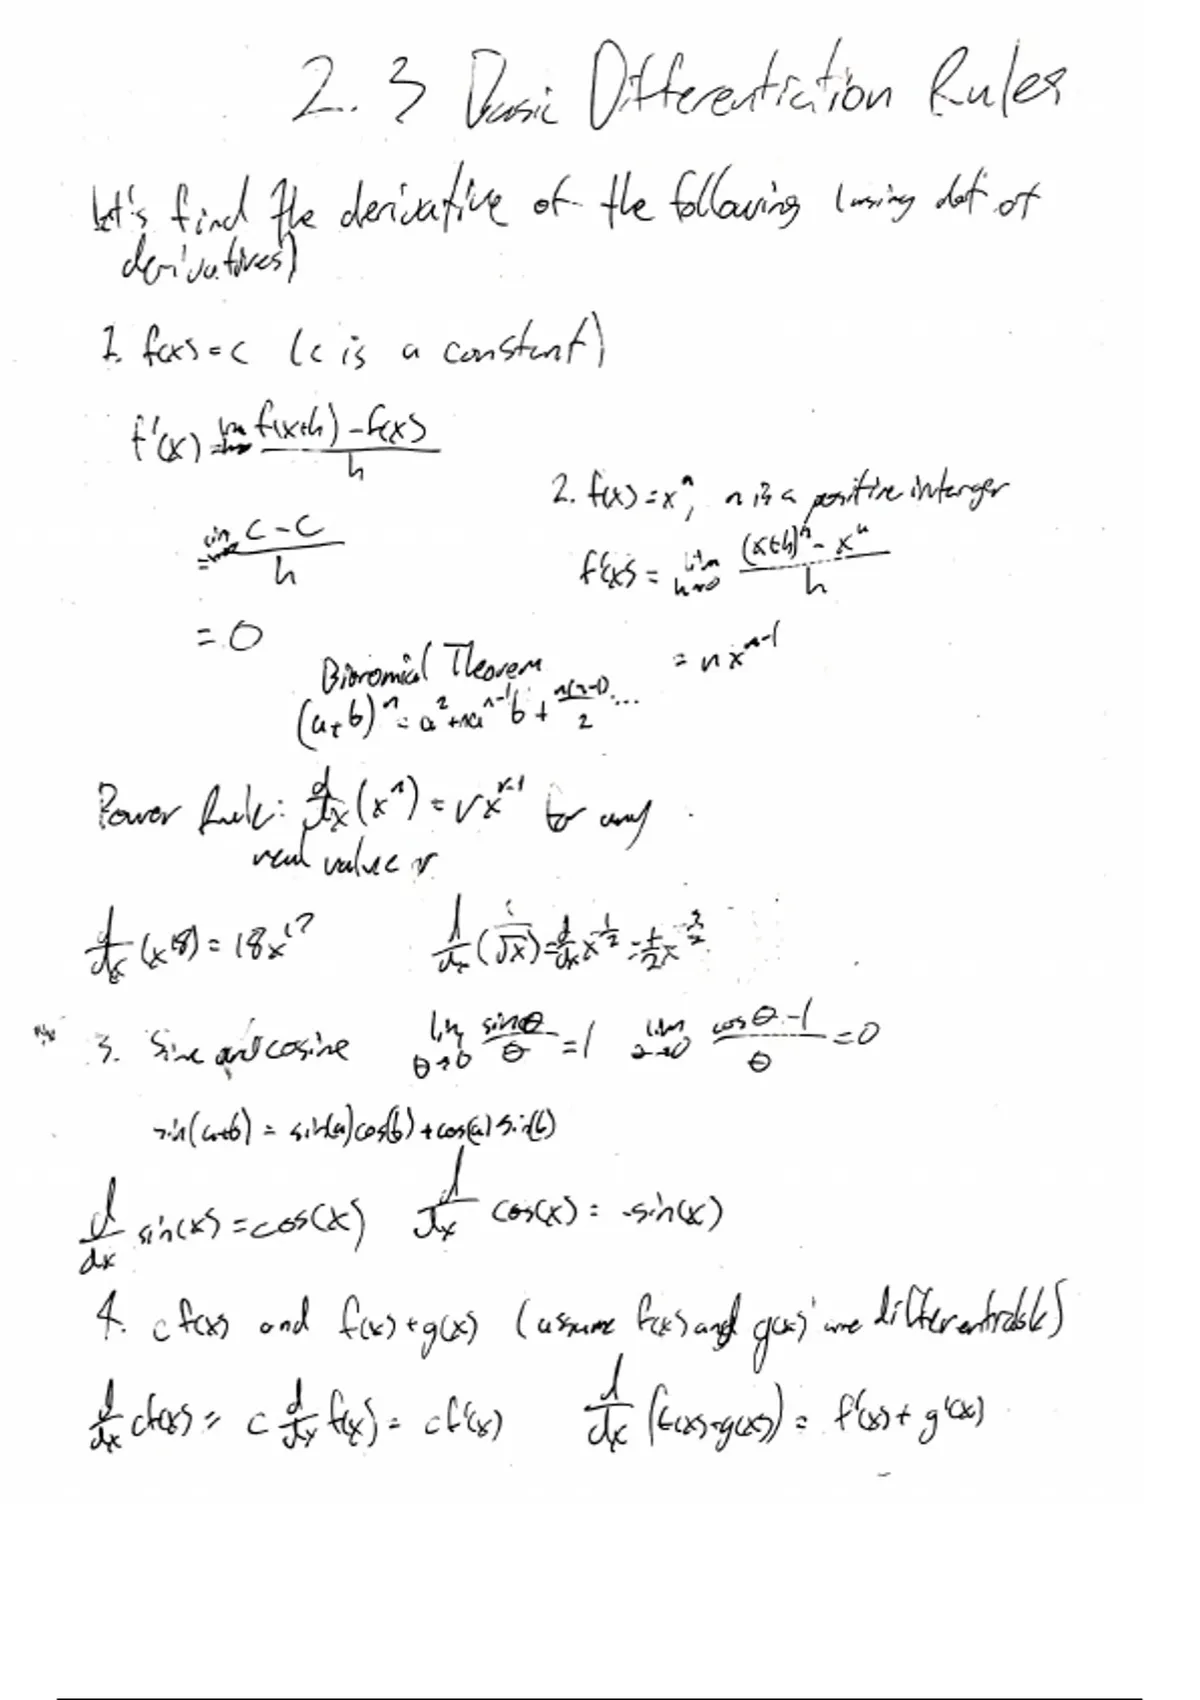 2.3 Basic Differentiation Rules
Let's find the derivative of the following (using def of
derivatives)
1. f(x) = c (c is a constant)
f'(x) = lim h→0 f(x+h) - f(x) / h
= lim h→0 c - c / h
= 0
2. f(x) = x^n, n is a positive interger
f'(x) = lim h→0 (x+h)^n - x^n / h
= nx^n-1
Binomial Theorem
(a+b)^n = a^2 + na^n-1 b + n(n-1)/2 ...
Power Rule: d/dx (x^r) = rx^r-1 for any
real value r
d/dx (x^18) = 18x^17
d/dx (1/√x) = d/dx x^-1/2 = -1/2 x^-3/2
3. Sine and cosine lim θ→0 sinθ/θ = 1 lim θ→0 cosθ-1/θ = 0
sin(a+b) = sin(a)cos(b) + cos(a)sin(b)
d/dx sin(x) = cos(x) d/dx cos(x) = -sin(x)
4. cf(x) and f(x)+g(x) (assume f(x) and g(x) are differentiable)
d/dx cf(x) = c d/dx f(x) = cf'(x) d/dx (f(x)+g(x)) = f'(x) + g'(x)